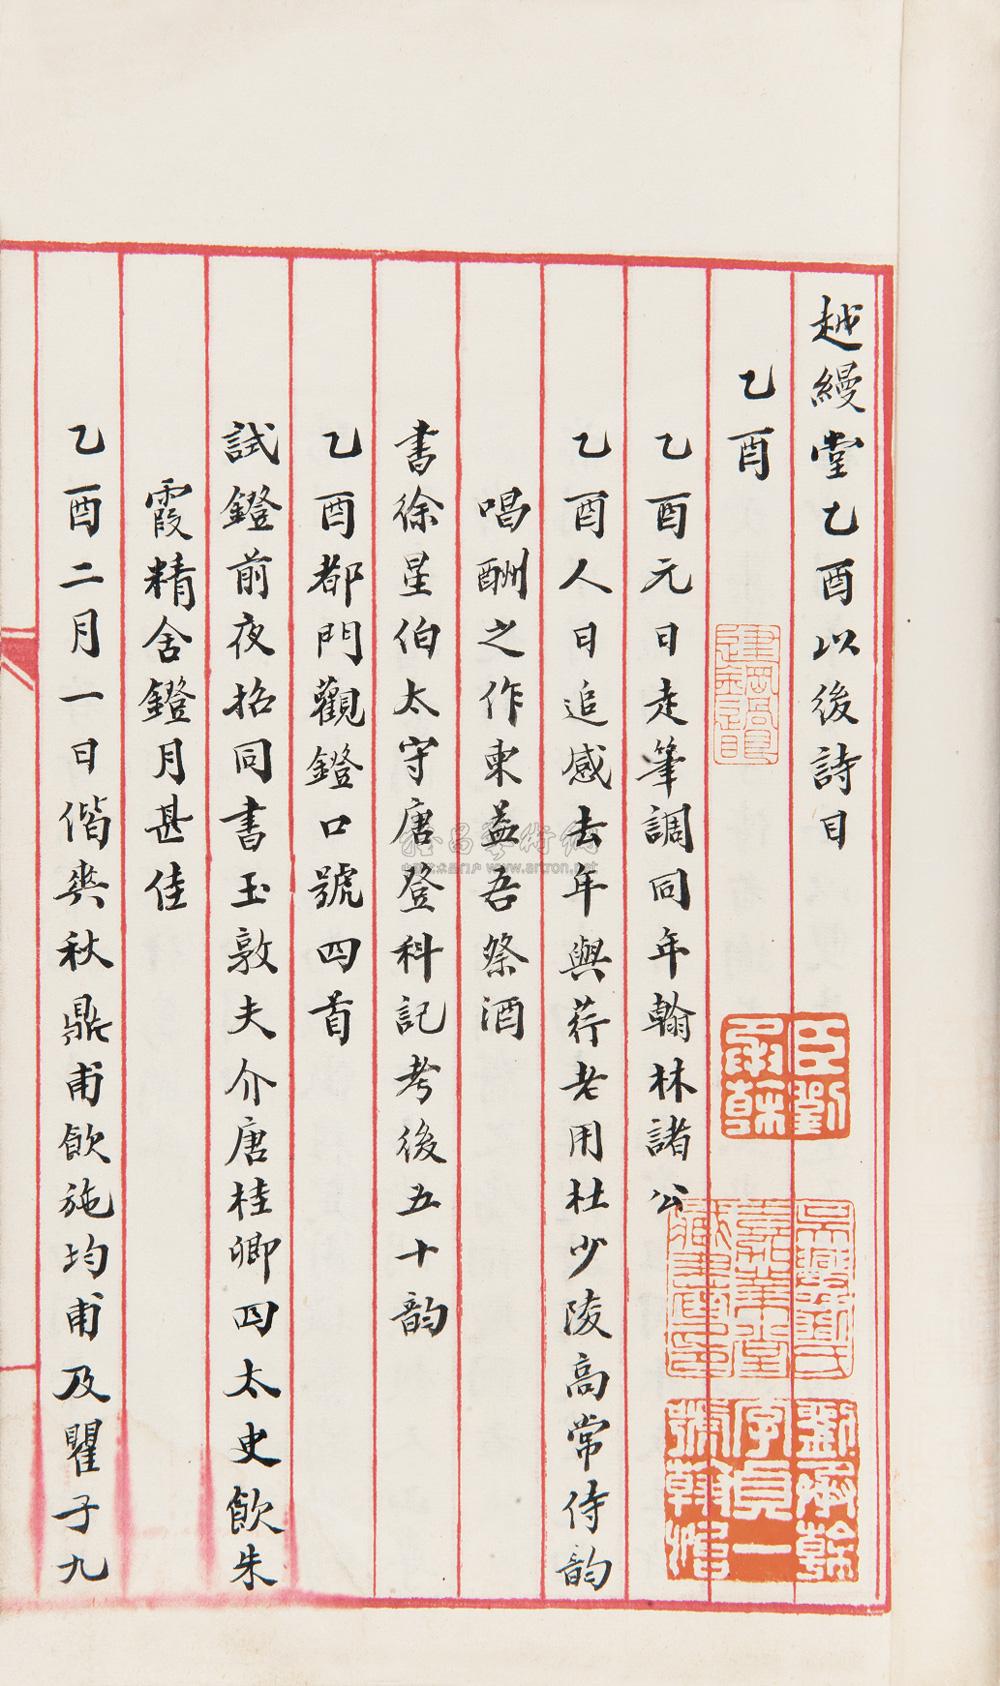 越縵堂乙酉以後詩目
乙酉
乙酉元日走筆調同年翰林諸公
乙酉人日追感去年與荇老用杜少陵高常侍韵
唱酬之作柬益吾祭酒
書徐星伯太守唐登科記考後五十韵
乙酉都門觀鐙口號四首
試鐙前夜招同書玉敦夫介唐桂卿四太史飲朱
霞精舍鐙月甚佳
乙酉二月一日偕爽秋鼎甫飲施均甫及瞿子九
臣劉承榦
吳興劉氏嘉業堂藏書印
劉承榦字貞一號翰怡
www.artron.net